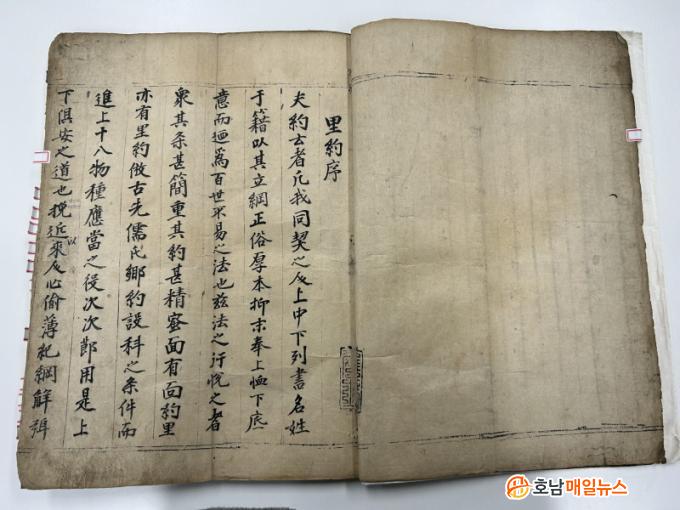 里約序
夫約云者凡我同契之民上中下列書名姓
于籍以其立綱正俗厚本抑末奉上恤下底
意而迺爲百世不易之法也玆法之行悅之者
衆其条甚簡重其約甚精密面有面約里
亦有里約倣古先儒氏鄉約設科之条件而
進上十八物種應當之役次次節用是上
下俱安之道也挽近以來民心偷薄紀綱解弛
호남매일뉴스